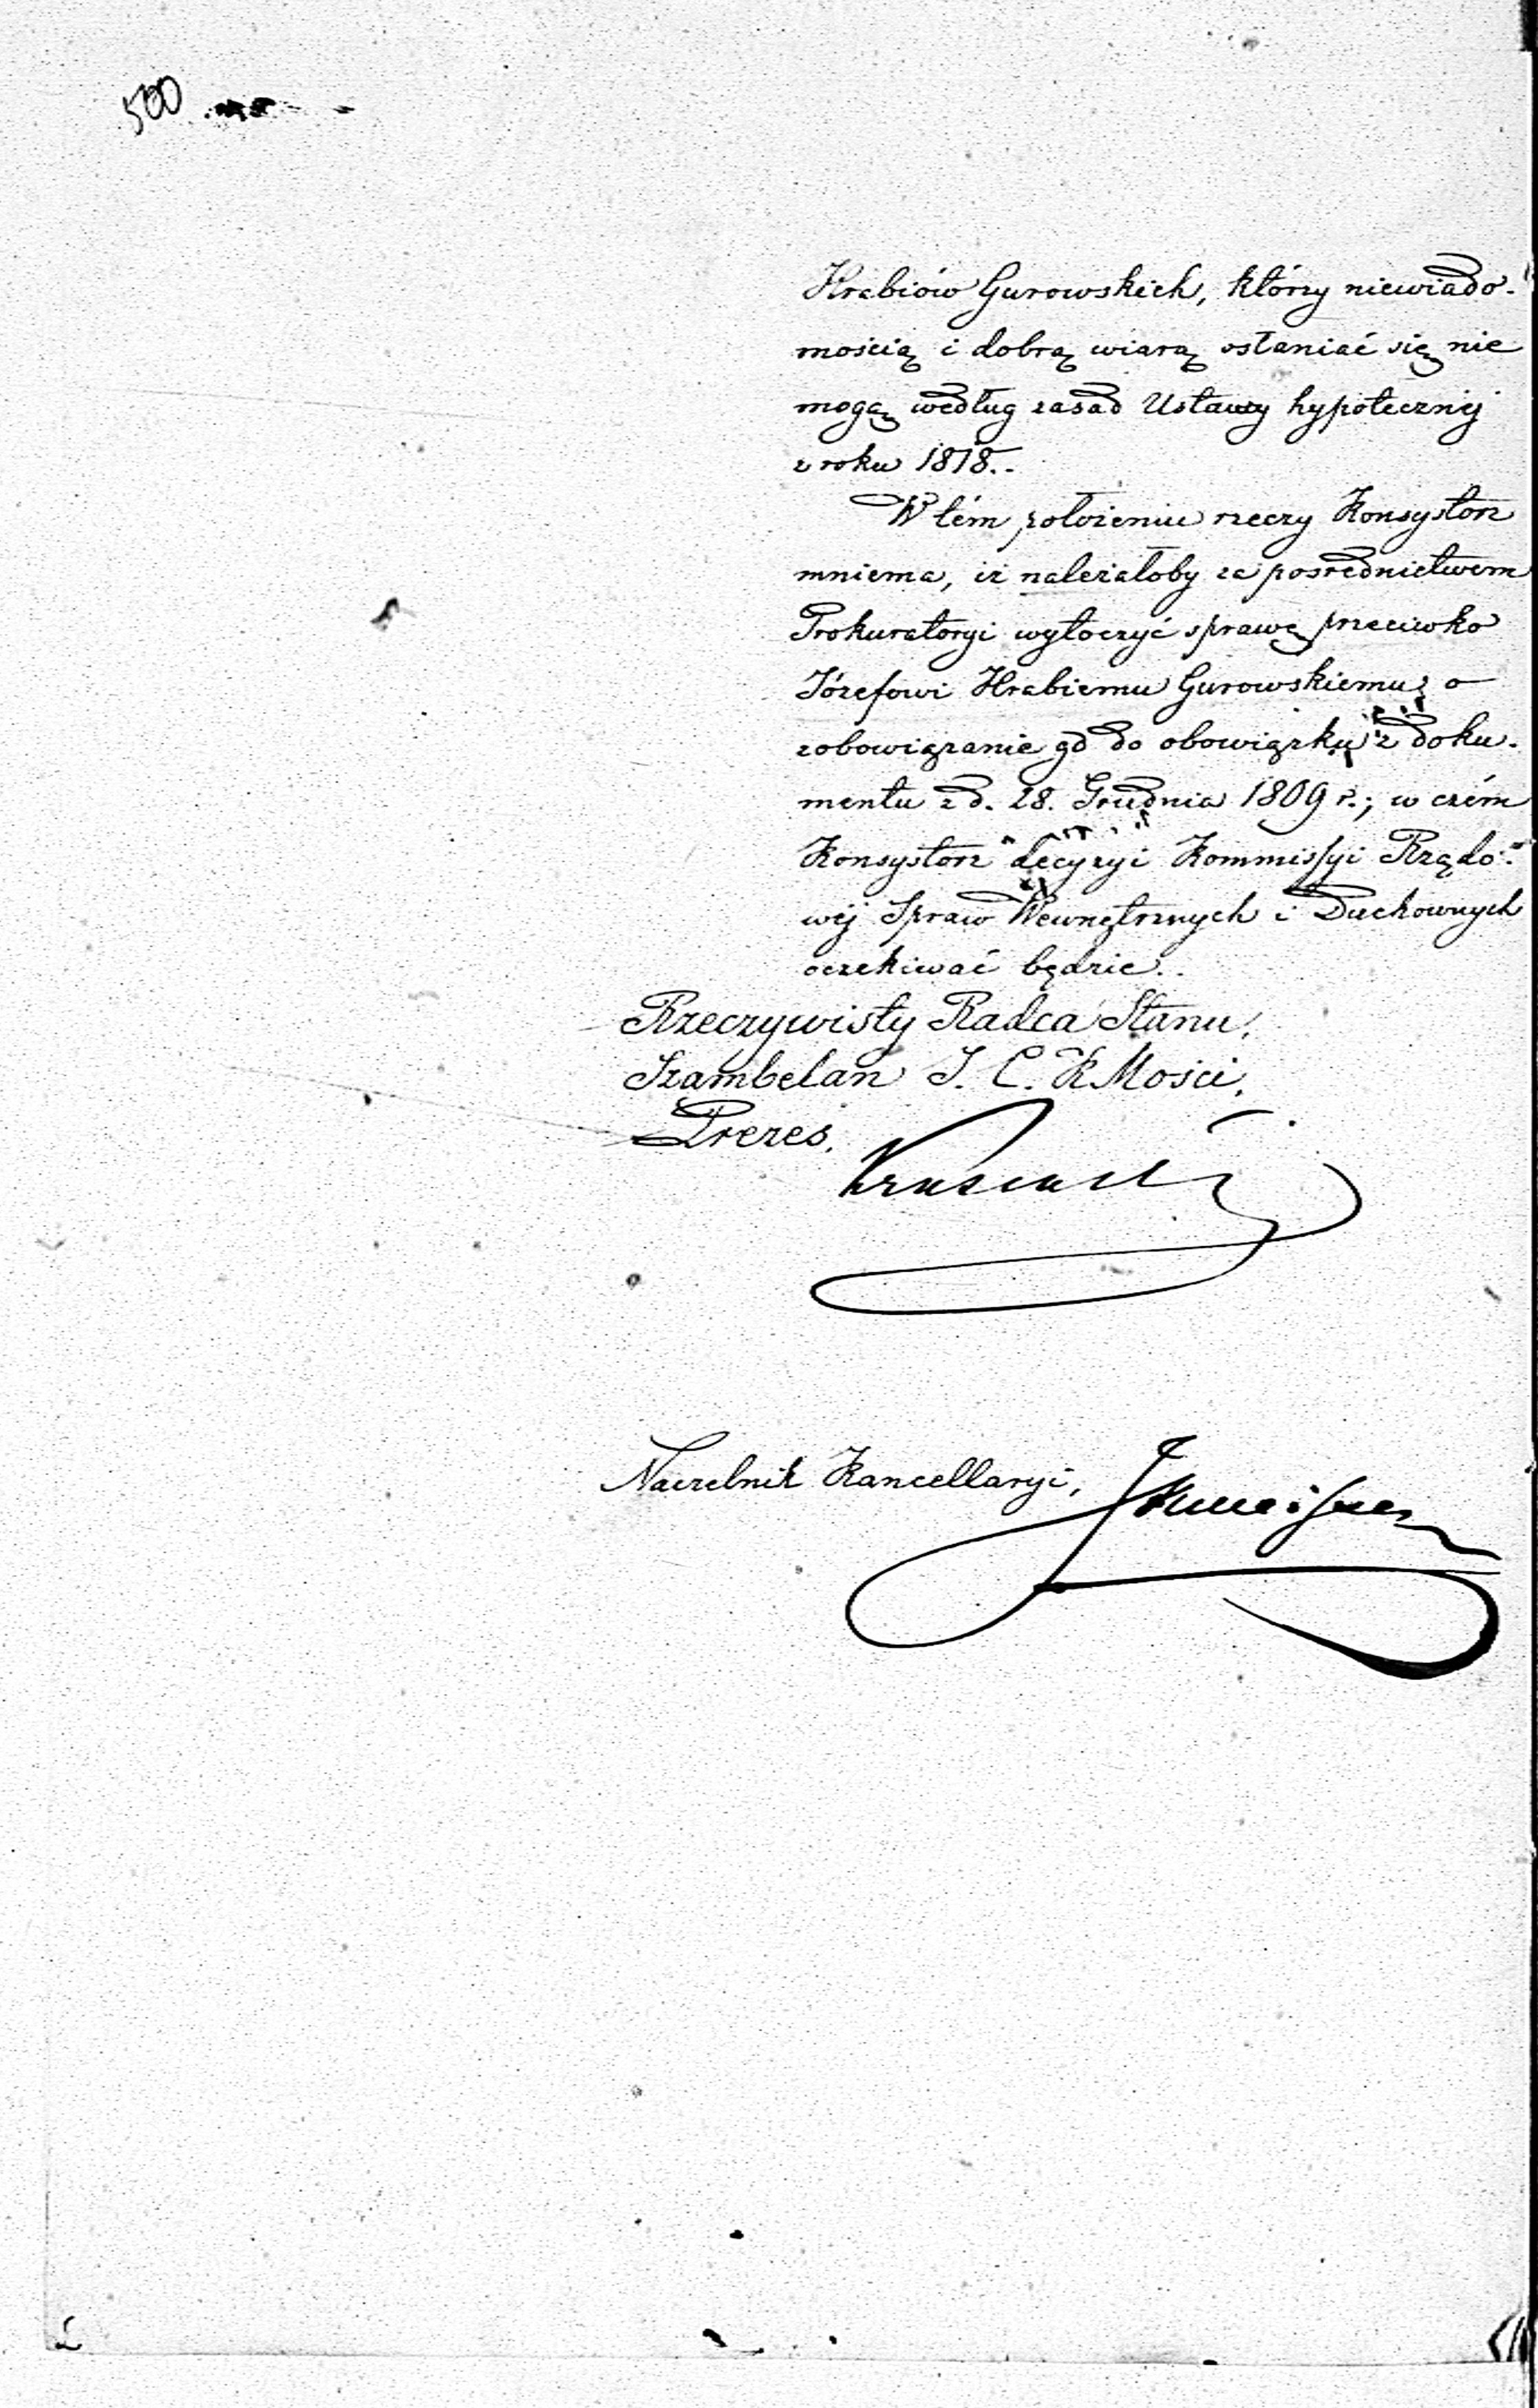 500
Hrabiów Gurowskich, którzy niewiado-
mością i dobrą wiarą osłaniać się nie
mogą według zasad Ustawy hypotecznéj
z roku 1818.
W tém położeniu rzeczy Konsystorz
mniema, iż należałoby za pośrednictwem
Prokuratoryi wytoczyć sprawę przeciwko
Józefowi Hrabiemu Gurowskiemu, o
zobowiązanie go do obowiązku z doku-
mentu z d. 28. Grudnia 1809 r.; w czém
Konsystorz decyzyi Kommissyi Rządo-
wéj Spraw Wewnętrznych i Duchownych
oczekiwać będzie.
Rzeczywisty Radca Stanu,
Szambelan J. C. K Mości,
Prezes.
Naczelnik Kancellaryi,